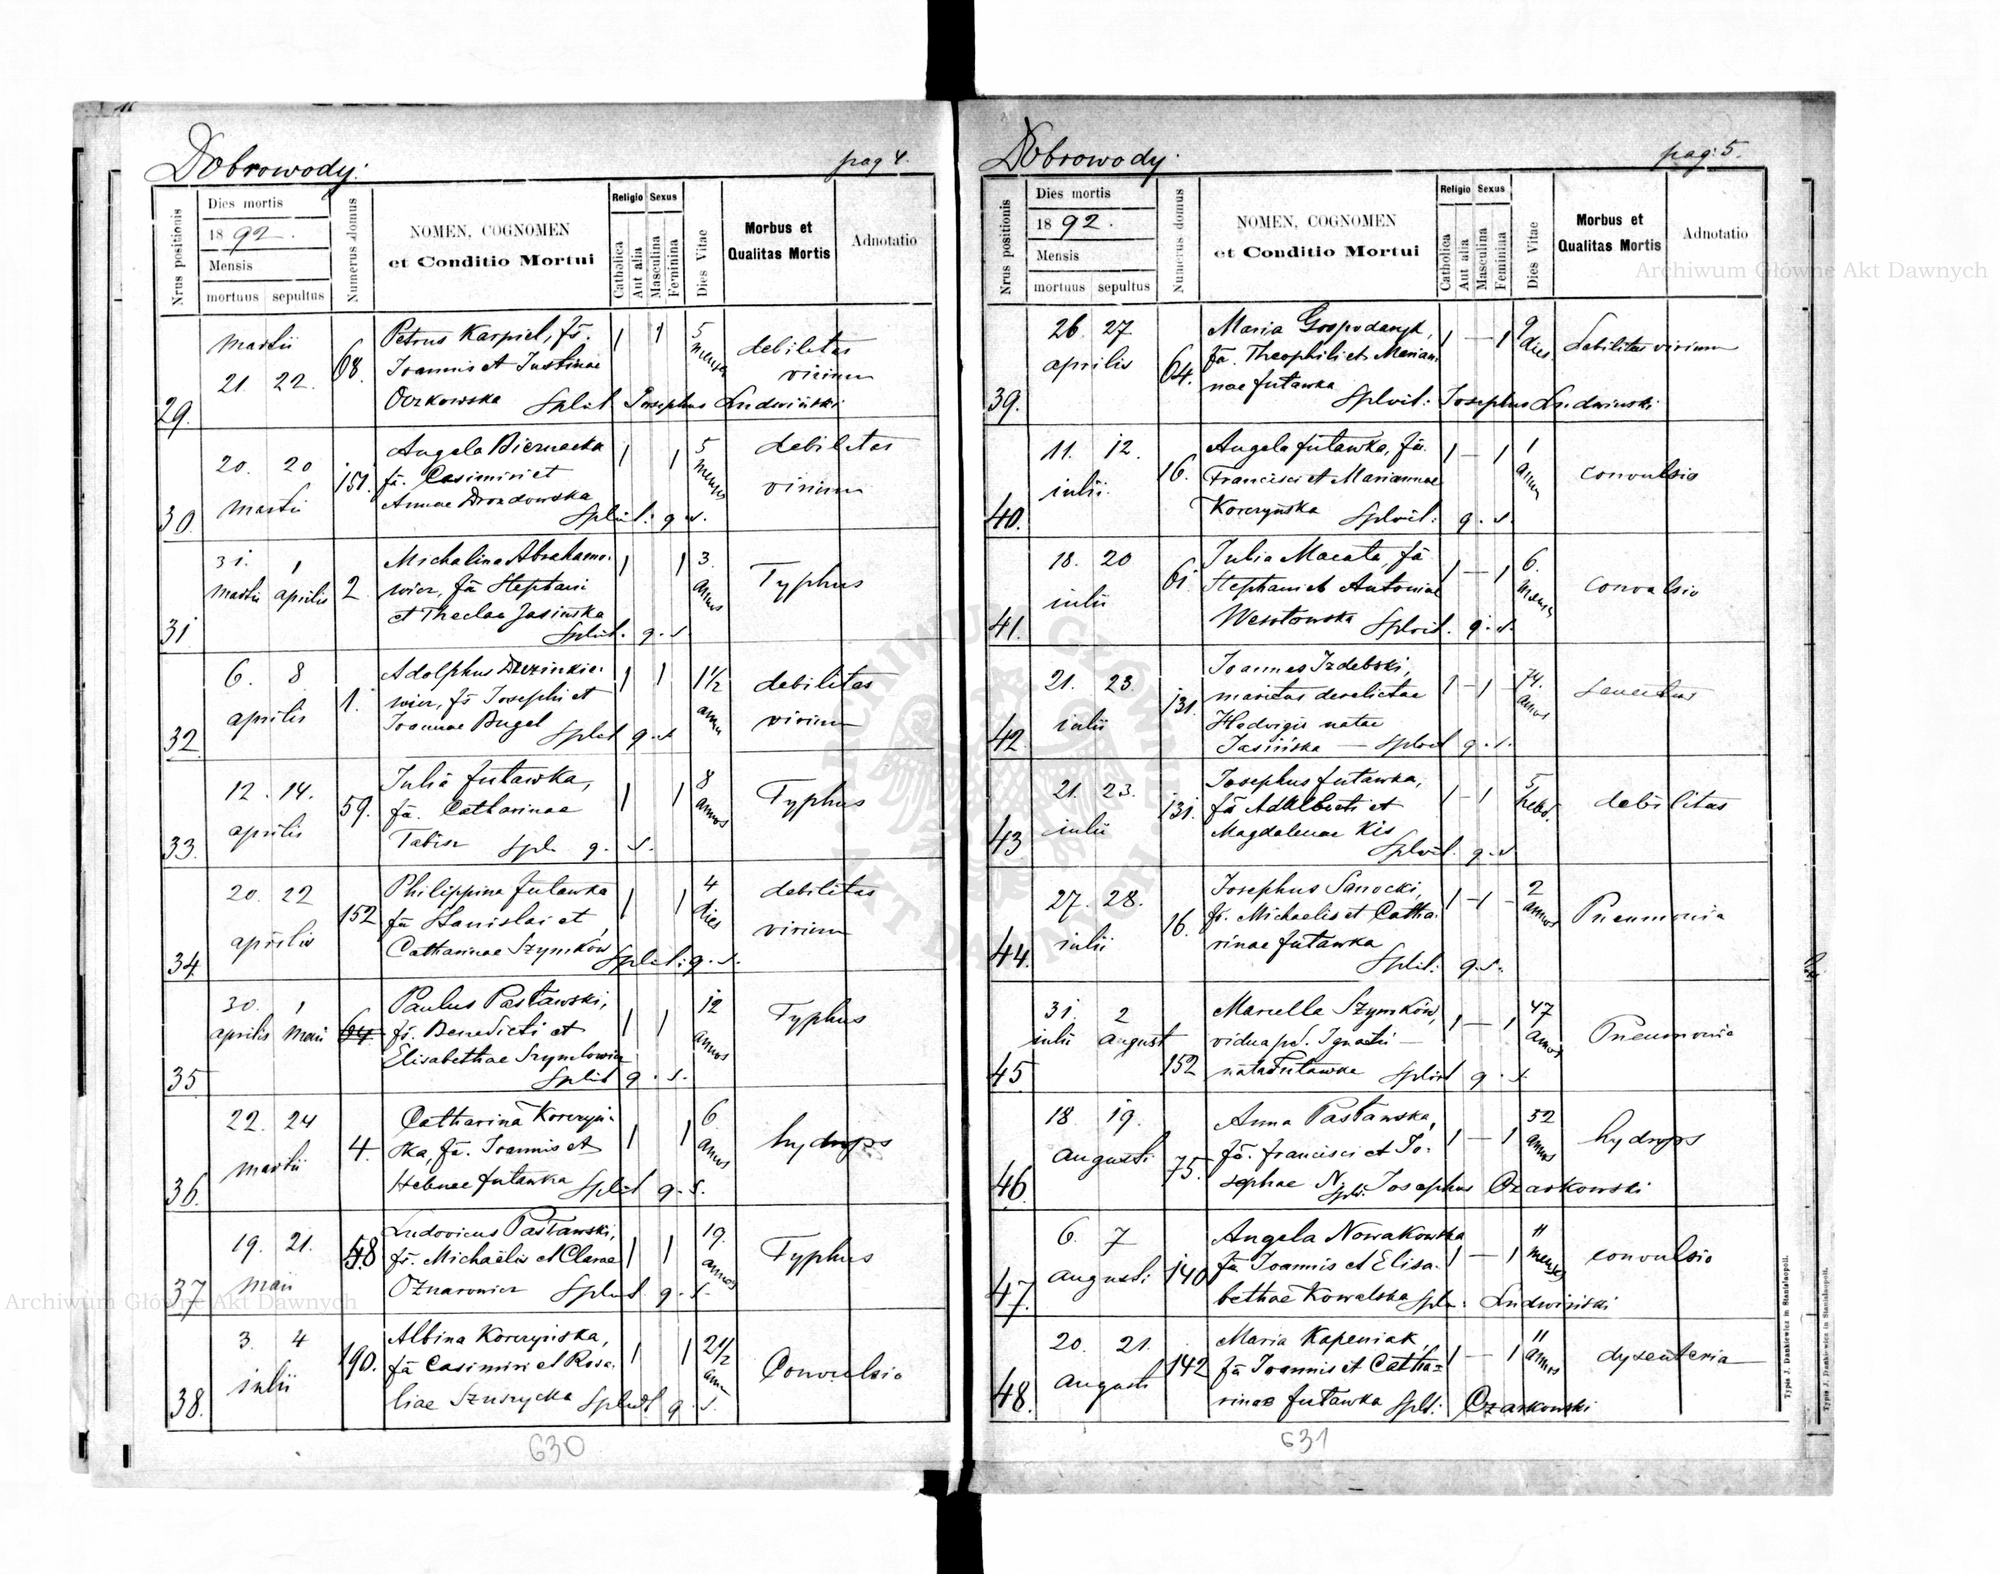 Dobrowody.
pag 4.
Nrus positionis
Dies mortis
1892.
Mensis
mortuus sepultus
Numerus domus
NOMEN, COGNOMEN
et Conditio Mortui
Religio Sexus
Catholica
Aut alia
Masculina
Feminina
Dies Vitae
Morbus et
Qualitas Mortis
Adnotatio
29. Martii 21 22. 68. Petrus Karpiel, fs. 1 1 5 menses debilitas
Joannis et Justinae virium
Oczkowska Splvit Josephus Ludwiński
30. 20. 20 martii 151. Angela Biernacka 1 1 5 menses debilitas
fa. Casimiri et virium
Annae Drozdowska
Splvit. q. s.
31 31. 1 martii aprilis 2. Michalina Abrahamo- 1 1 3. annos Typhus
wicz, fa Stephani
et Theclae Jasińska
Splvit. q. s.
32 6. 8 aprilis 1. Adolphus 1 1 1 1/2 anni debilitas
wicz, fs Josephi et virium
Joannae Bugel Splvit q. s
33. 12. 14. aprilis 59. Julia Futawka, 1 1 8 annos Typhus
fa. Catharinae
Tabisz Spl. q. s.
34. 20. 22 aprilis 152 Philippina Futawka 1 1 4 dies debilitas
fa Stanislai et virium
Catharinae Szymków Splvit: q. s.
35 30. 1 aprilis Maii 64 Paulus Pasławski, 1 1 12 annos Typhus
fs. Benedicti et
Elisabethae
Splvit q. s.
36. 22. 24 martii 4. Catharina Korczyń- 1 1 6. annos hydrops
ska, fa. Joannis et
Helenae Futawka Splvit q. s.
37 19. 21. maii 48 Ludovicus Pasławski, 1 1 19. annos Typhus
fs. Michaëlis et Clarae
Oznarowicz Splvit. q. s.
38. 3. 4 iulii 190. Albina Korczyńska, 1 1 2 1/2 anni Convulsio
fa Casimiri et Rosa-
liae Szuszycka Splvit q. s.
630
Dobrowody.
pag. 5.
Nrus positionis
Dies mortis
1892.
Mensis
mortuus sepultus
Numerus domus
NOMEN, COGNOMEN
et Conditio Mortui
Religio Sexus
Catholica
Aut alia
Masculina
Feminina
Dies Vitae
Morbus et
Qualitas Mortis
Adnotatio
39. 26. 27. aprilis 64. Maria Gospodaryk, 1 — 1 9 dies debilitas virium
fa. Theophili et Marian-
nae Futawka
Splvit: Josephus Ludwinski
40. 11. 12. iulii. 16. Angela Futawka, fa. 1 — 1 1 annum convulsio
Francisci et Mariannae
Korczyńska Splvit: q. s.
41. 18. 20 iulii 61. Julia Macata, fa 1 — 1 6. menses convulsio
Stephani et Antoniae
Wesołowska Splvit. q. s.
42. 21. 23. iulii 131. Joannes Izdebski, 1 — 1 — 74. annos senectus
maritus derelictae
Hedvigis natae
Jasińska — Splvit q. s.
43 21. 23. iulii 131. Josephus Futawka, 1 — 1 5 hebd. debilitas
fs Adalberti et
Magdalenae Kis
Splvit. q. s
44. 27. 28. iulii 16. Josephus Sanocki, 1 — 1 — 2 annos Pneumonia
fs. Michaelis et Catha-
rinae Futawka
Splvit. q. s.
45 31. 2 iulii august 152 Marcella Szymków, 1 — 1 47 annos Pneumonia
vidua pd. Ignatii —
nata Futawka Splvit q. s.
46 18 19. Augusti 75. Anna Pasławska, 1 — 1 52 annos hydrops
fa. Francisci et Jo-
sephae N. Splv. Josephus Czarkowski
47. 6. 7 Augusti 140 Angela Nowakowska 1 — 1 11 menses convulsio
fa Joannis et Elisa-
bethae Kowalska Splv: Ludwiński
48. 20. 21. Augusti 142 Maria Kapeniak, 1 — 1 11 annos dysenteria
fa Joannis et Catha-
rinae Futawka Splv: Czarkowski
631
Typis J. Dankiewicz in Stanislaopoli.
Typis J. Dankiewicz in Stanislaopoli.
Archiwum Główne Akt Dawnych
Archiwum Główne Akt Dawnych
ARCHIWUM GŁÓWNE AKT DAWNYCH